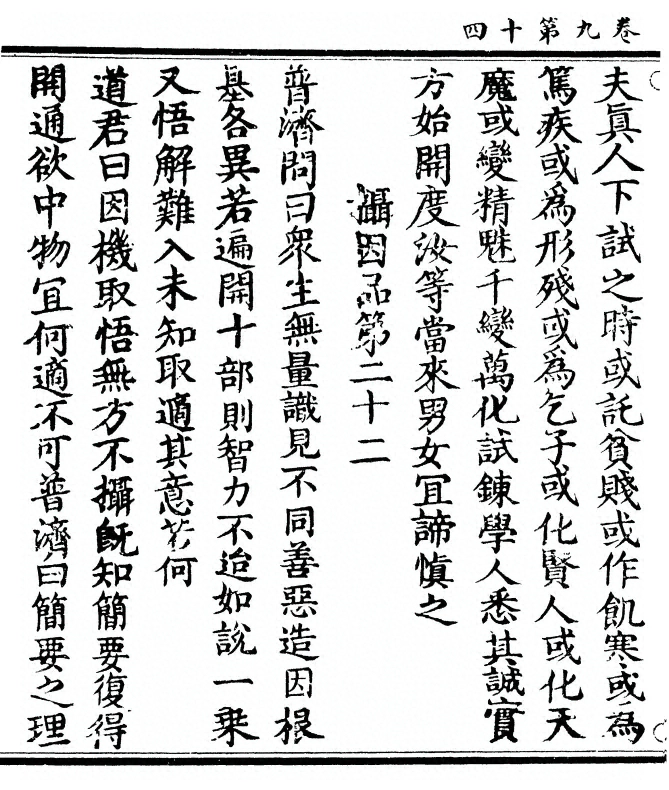 卷九第十四
夫眞人下試之時或託貧賤或作飢寒或為
篤疾或為形殘或為乞子或化賢人或化天
魔或變精魅千變萬化試鍊學人悉其誠實
方始開度汝等當來男女冝諦慎之
攝因品第二十二
普濟問曰衆生無量識見不同善惡造因根
基各異若遍開十部則智力不迨如說一乗
又悟解難入未知取適其意若何
道君曰因機取悟無方不攝旣知簡要復得
開通欲中物冝何適不可普濟曰簡要之理